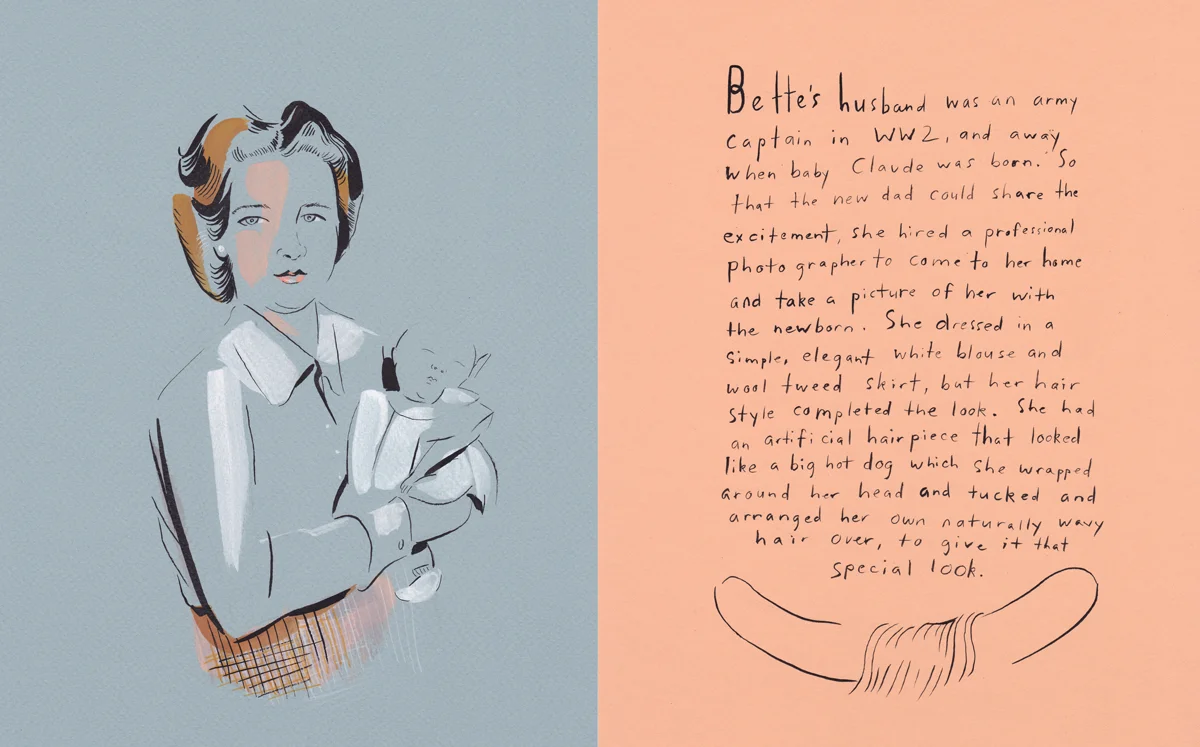 Bette's husband was an army
captain in WW2, and away
when baby Claude was born. So
that the new dad could share the
excitement, she hired a professional
photographer to come to her home
and take a picture of her with
the newborn. She dressed in a
simple, elegant white blouse and
wool tweed skirt, but her hair
style completed the look. She had
an artificial hair piece that looked
like a big hot dog which she wrapped
around her head and tucked and
arranged her own naturally wavy
hair over, to give it that
special look.